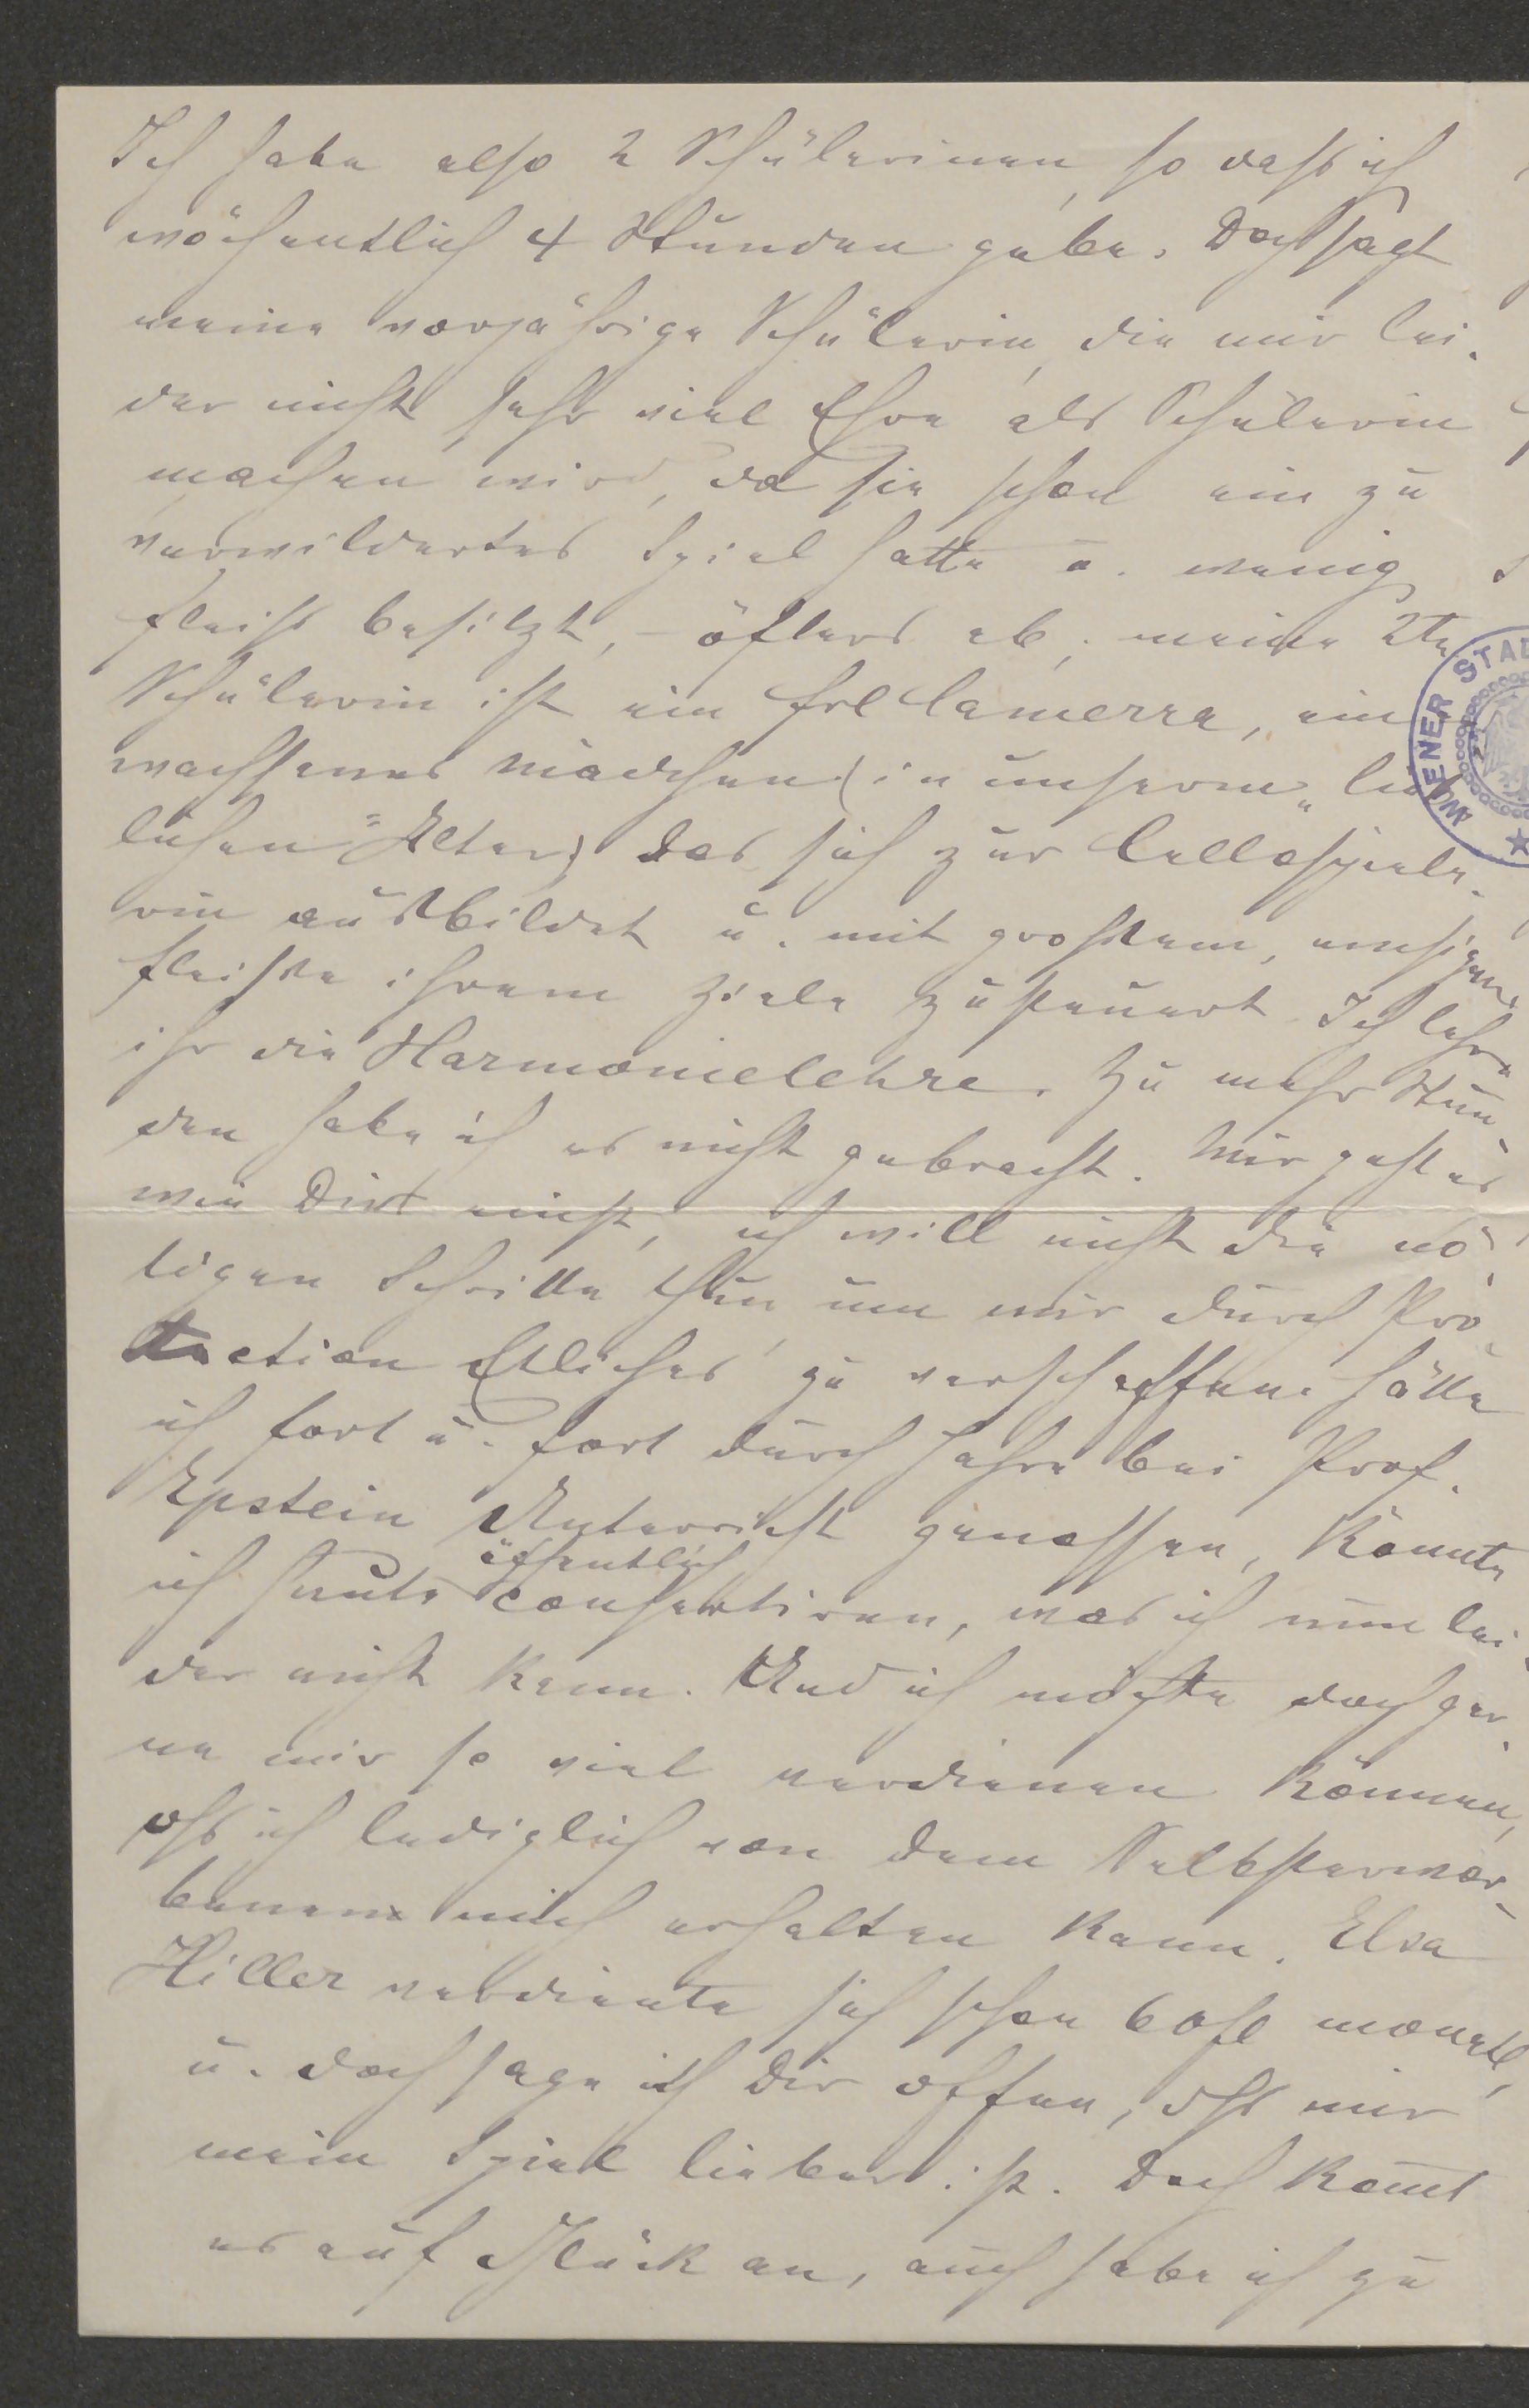 Ich habe also 2 Schülerinen, so dass ich
wöchentlich 4 Stunden gebe. Doch sagt
meine vorjährige Schülerin, die mir lei-
der nicht sehr viel Ehre als Schülerin
machen wird, da sie schon ein zu
verwildertes Spiel hatte u. wenig
Fleiss besitzt, – öfters ab; meine 2te
Schülerin ist ein Frl Camerra, ein
wachsenes Mädchen (in unserem „
lichen" Alter) das sich zur Cellospiele-
rin ausbildet u. mit grossem, emsigem
Fleisse ihrem Ziele zusteuert. Ich lehre
ihr die Harmonielehre. Zu mehr Stun-
den habe ich es nicht gebracht. Mir geht es
wie Dir einst, ich will nicht die nö-
tigen Schritte thun, um mir durch Pro-
tection Etliches zu verschaffen. Hätte
ich fort u. fort durch Jahre bei Prof.
Epstein Unterricht genossen, könnte
ich heute öffentlich concertiren, was ich nun lei-
der nicht kann. Und ich möchte doch ger-
ne mir so viel verdienen können,
dss ich lediglich von dem Selbsterwor-
benen mich erhalten kann. Elsa
Hiller verdiente sich schon 60 fl monatl,
u. doch sage ich Dir offen, dss mir
mein Spiel lieber ist. Doch komt
es auf Glück an, auch habe ich zu
WIENER STAD